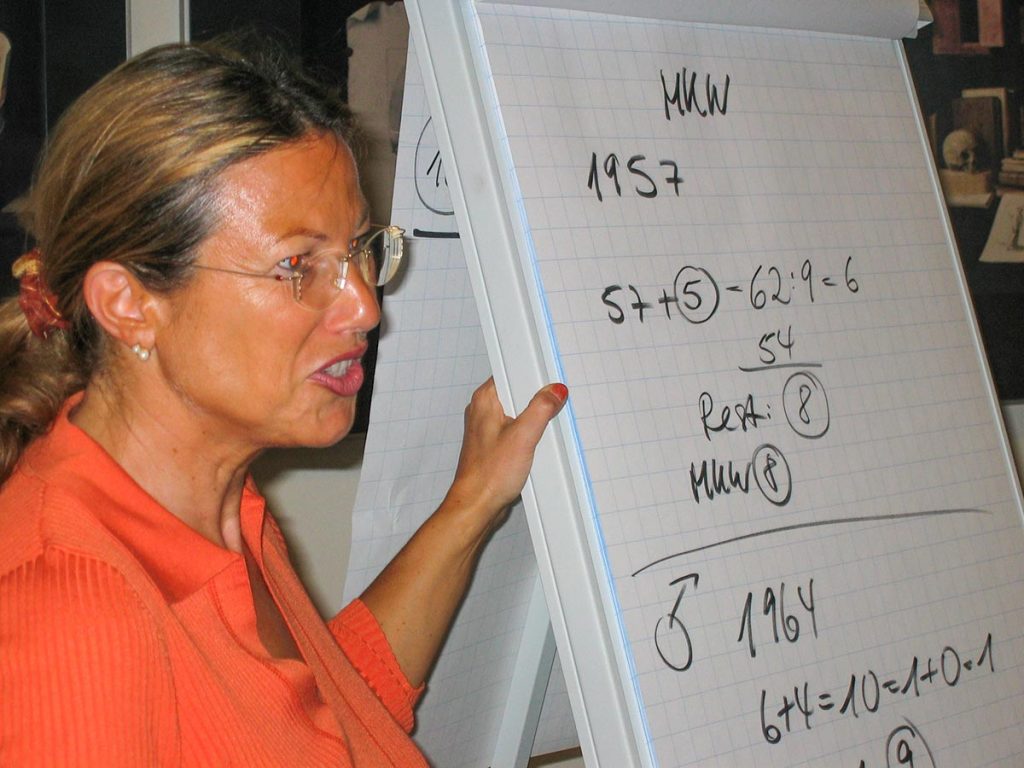 MKW
1957
57+5=62:9=6
54
Rest: 8
MKW 8
♂ 1964
6+4=10=1+0=1
9